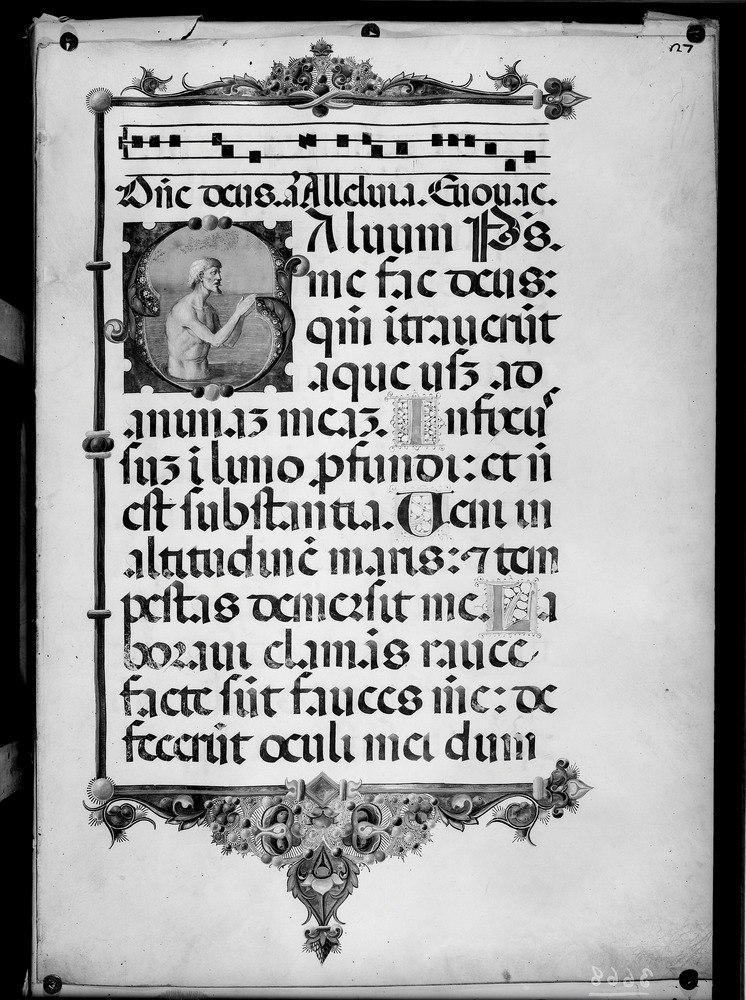 27
Dñe deus. a Alleluia. Euouae.
Saluum Ps.
me fac deus:
qm̄ itrauerūt
aque usqꝫ ad
animaꝫ meaꝫ. Infixu
suꝫ i limo pfundi: et n̄
est substantia. Ueni in
altitudinē maris: ⁊ tem
pestas demersit me. La
boraui clamās rauce
facte sūt fauces mē: de
fecerūt oculi mei dum
3668